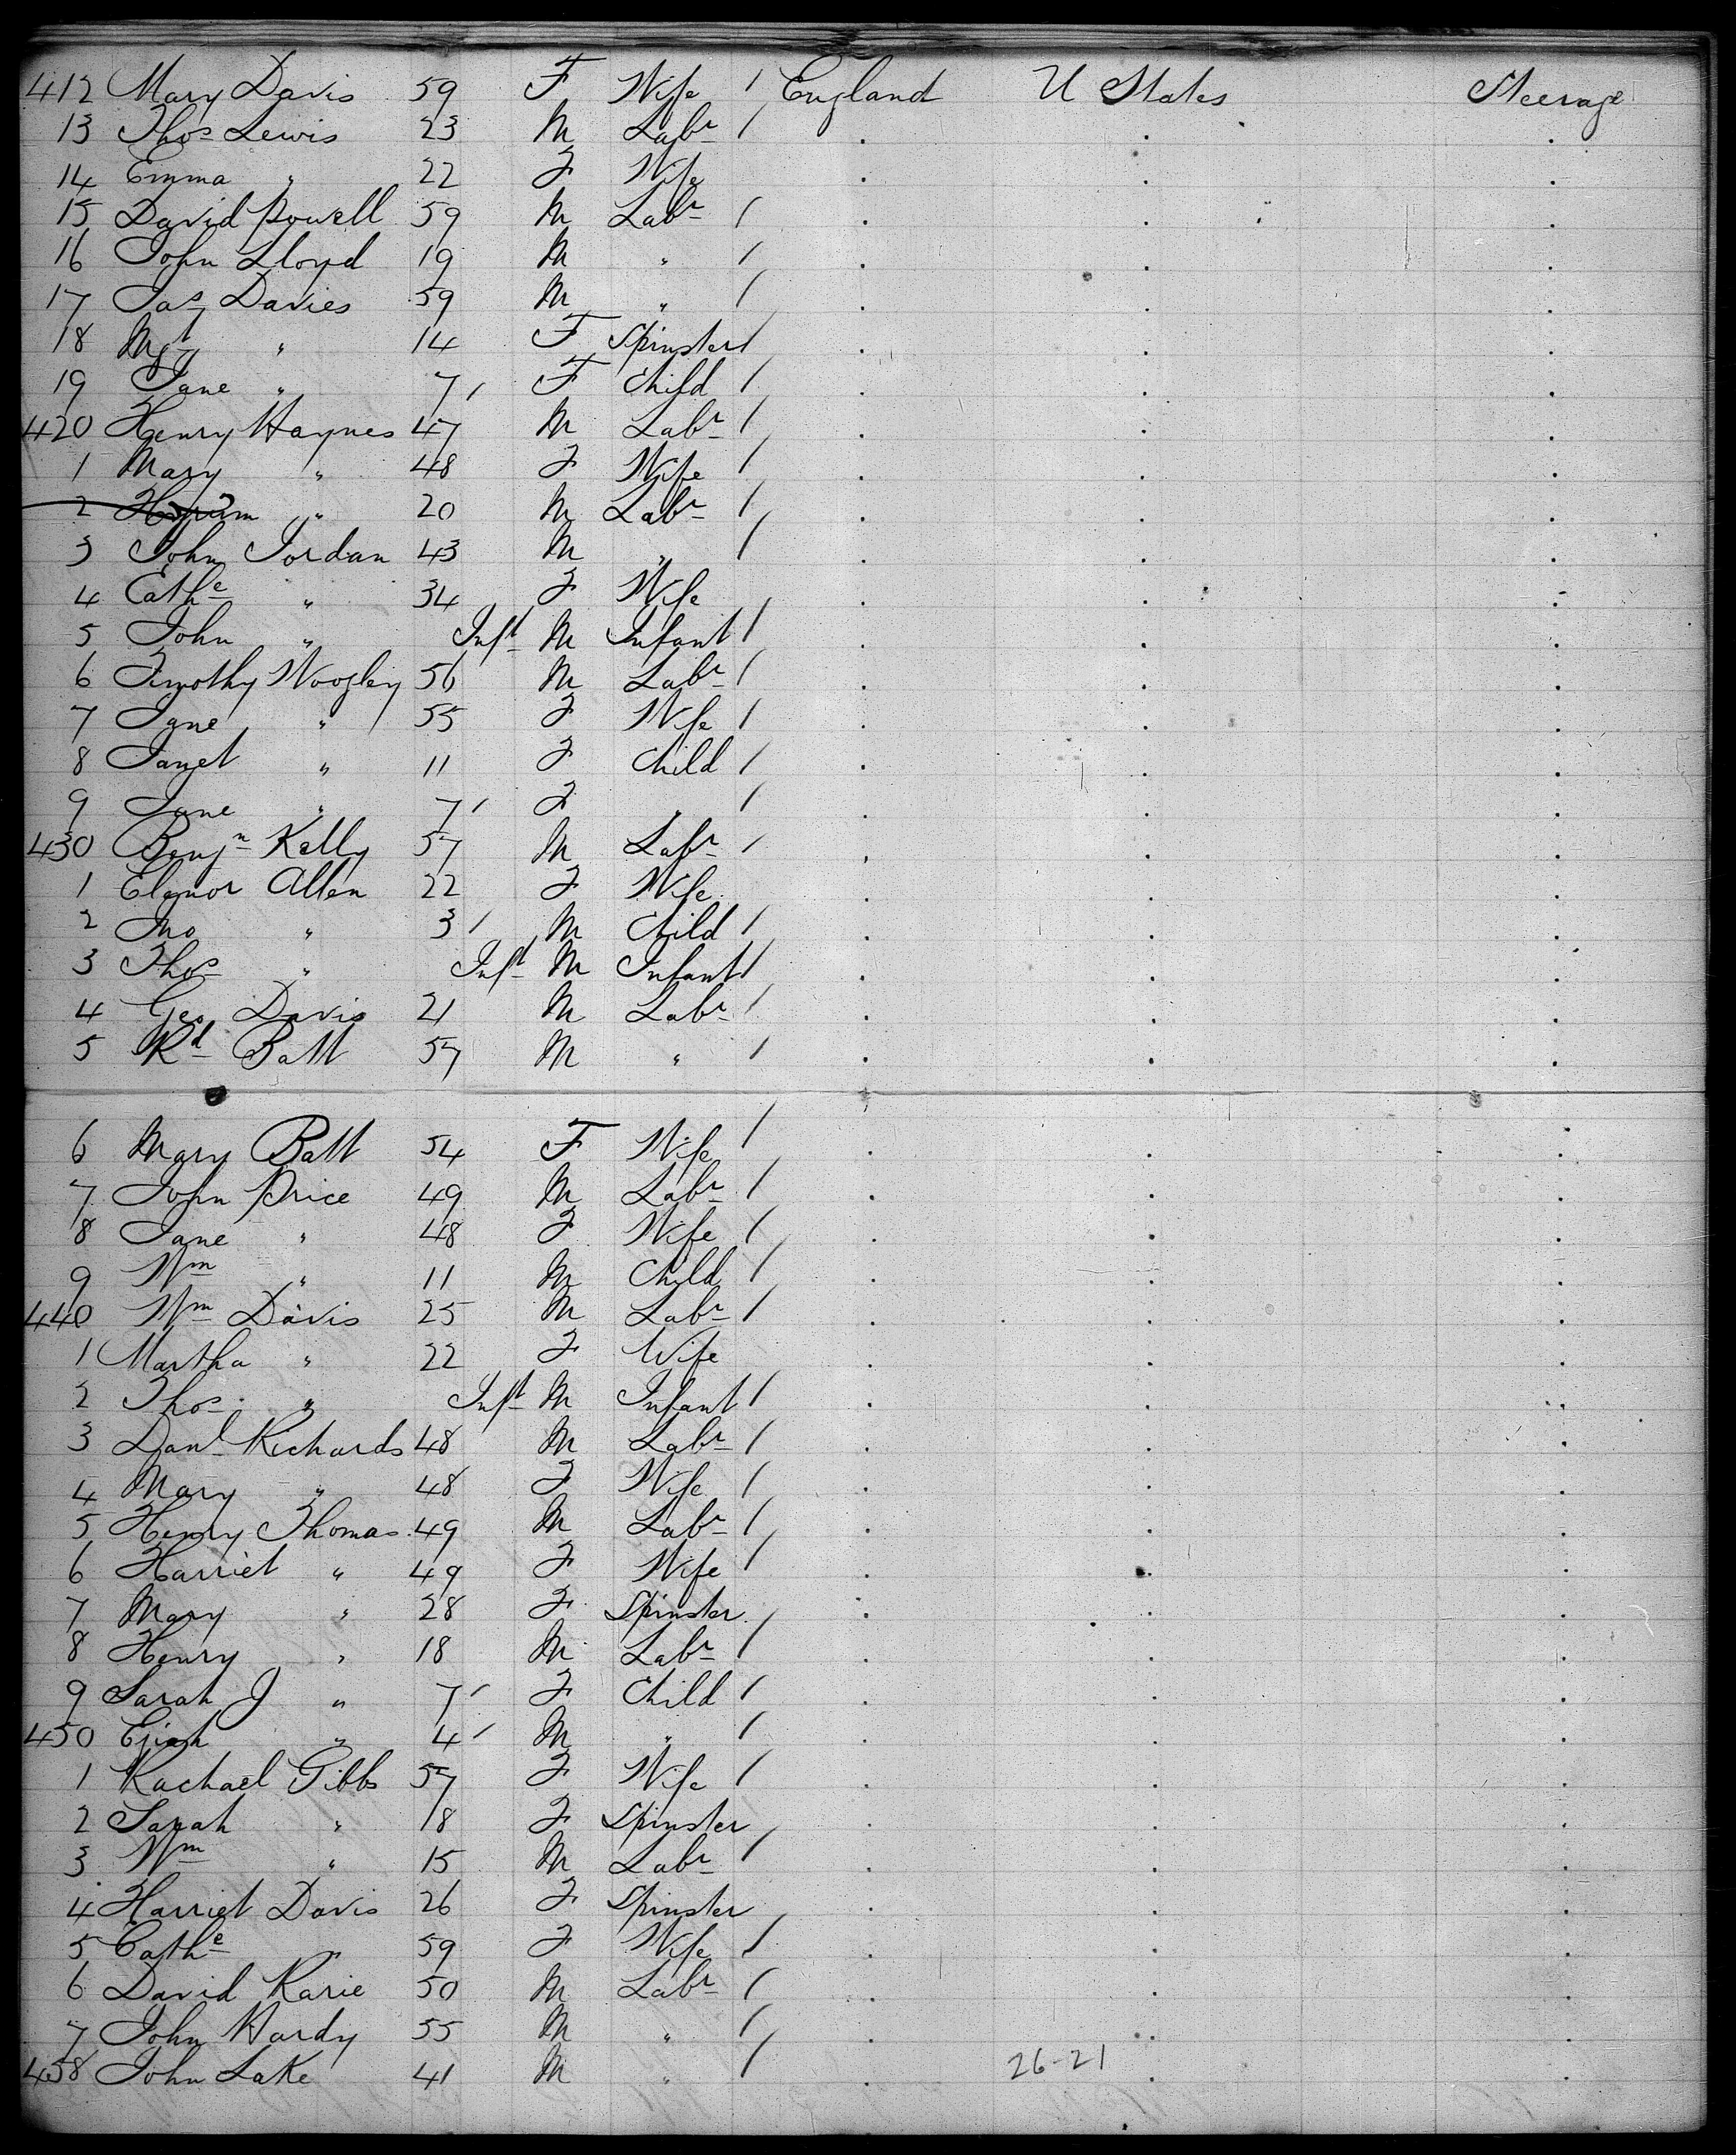 412 Mary Davis 59 F Wife / England U States Steerage
13 Thos Lewis 23 M Labr / . . .
14 Emma " 22 F Wife . . .
15 David Powell 59 M Labr / . . .
16 John Lloyd 19 M " / . . .
17 Jas Davies 59 M " / . . .
18 Mgt " 14 F Spinster / . . .
19 Jane " 7 / F Child / . . .
420 Henry Haynes 47 M Labr / . . .
1 Mary " 48 F Wife / . . .
2 " 20 M Labr / . . .
3 John Jordan 43 M " / . . .
4 Cathe " 34 F Wife . . .
5 John " Inft M Infant / . . .
6 Timothy 56 M Labr / . . .
7 Jane " 55 F Wife / . . .
8 Janet " 11 F Child / . . .
9 Jane " 7 / F " / . . .
430 Benjn Kelly 57 M Labr / . . .
1 Elenor Allen 22 F Wife . . .
2 Jno " 3 / M Child / . . .
3 Thos " Inft M Infant / . . .
4 Geo Davis 21 M Labr / . . .
5 Rd Batt 57 M " / . . .
6 Mary Batt 54 F Wife / . . .
7 John Price 49 M Labr / . . .
8 Jane " 48 F Wife / . . .
9 Wm " 11 M Child / . . .
440 Wm Davis 25 M Labr / . . .
1 Martha " 22 F Wife . . .
2 Thos " Inft M Infant / . . .
3 Danl Richards 48 M Labr / . . .
4 Mary " 48 F Wife / . . .
5 Henry Thomas 49 M Labr / . . .
6 Harriet " 49 F Wife / . . .
7 Mary " 28 F Spinster . . .
8 Henry " 18 M Labr / . . .
9 Sarah J " 7 / F Child / . . .
450 " 4 / M " / . . .
1 Rachael Gibbs 57 F Wife / . . .
2 Sarah " 18 F Spinster . . .
3 Wm " 15 M Labr / . . .
4 Harriet Davis 26 F Spinster . . .
5 Cathe " 59 F Wife / . . .
6 David Karie 50 M Labr / . . .
7 John Hardy 55 M " / . . .
458 John Lake 41 M " / . 26-21 . .